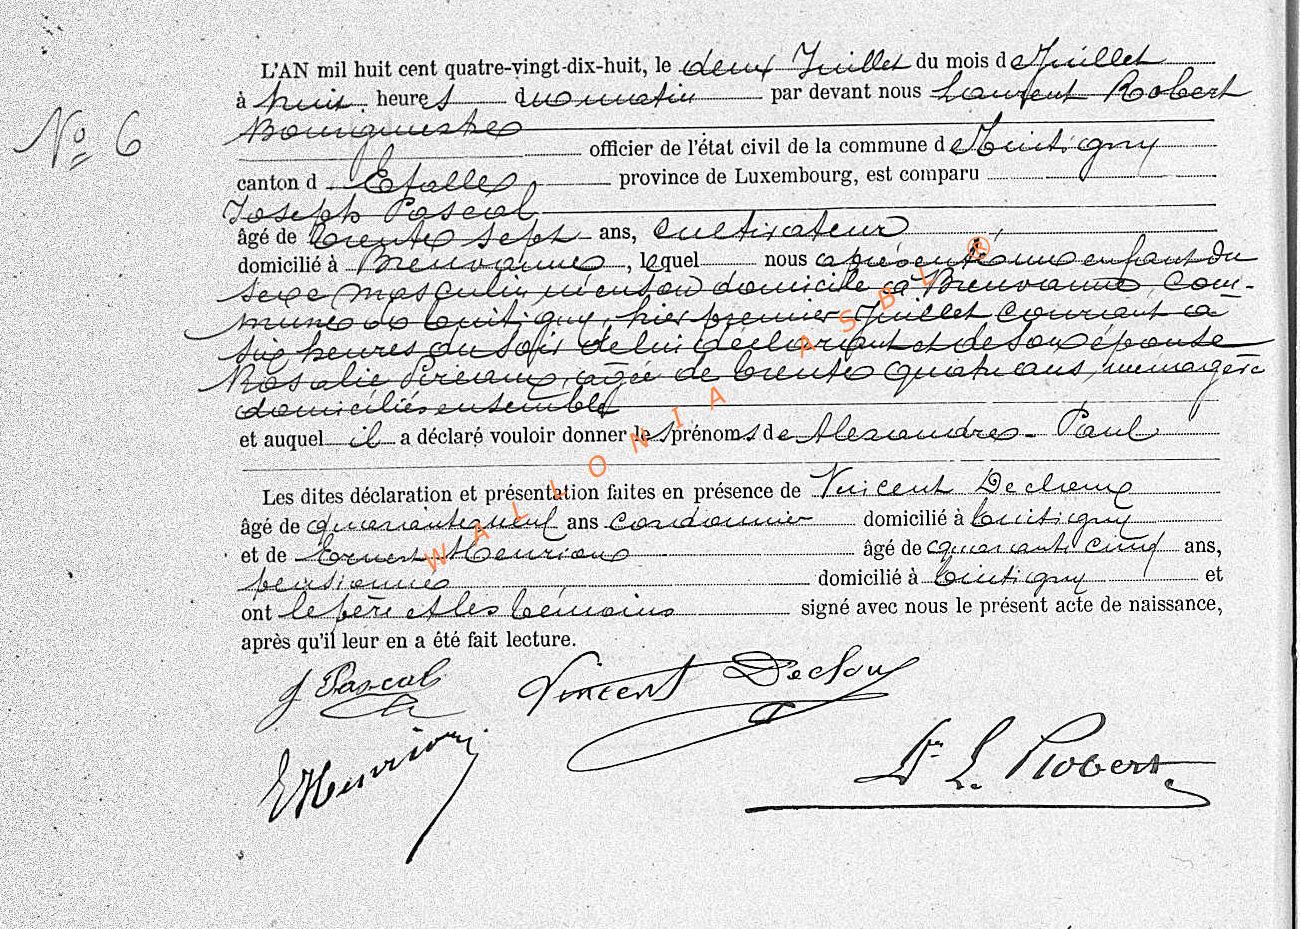 No 6
L'AN mil huit cent quatre-vingt-dix-huit, le deux Juillet du mois de Juillet
à huit heures du matin par devant nous Laurent Robert
Bourgmestre
officier de l'état civil de la commune de Tintigny
canton d'Etalle, province de Luxembourg, est comparu
Joseph Pascal
âgé de trente sept ans, cultivateur
domicilié à Breuvanne, lequel nous a présenté un enfant du
sexe masculin, né en son domicile à Breuvanne, com-
mune de Tintigny, hier premier Juillet courant à
six heures du soir de lui déclarant et de son épouse
Rosalie Pireaux, âgée de trente quatre ans, ménagère
domiciliés ensemble
et auquel il a déclaré vouloir donner les prénoms de Alexandre - Paul
Les dites déclaration et présentation faites en présence de Vincent Decloux
âgé de quarante neuf ans cordonnier domicilié à Tintigny
et de Ernest Henrion âgé de quarante cinq ans,
pensionné domicilié à Tintigny et
ont le père et les témoins signé avec nous le présent acte de naissance,
après qu'il leur en a été fait lecture.
J Pascal Vincent Decloux
E Henrion
Dr L. Robert
WALLONIA ASBL ®